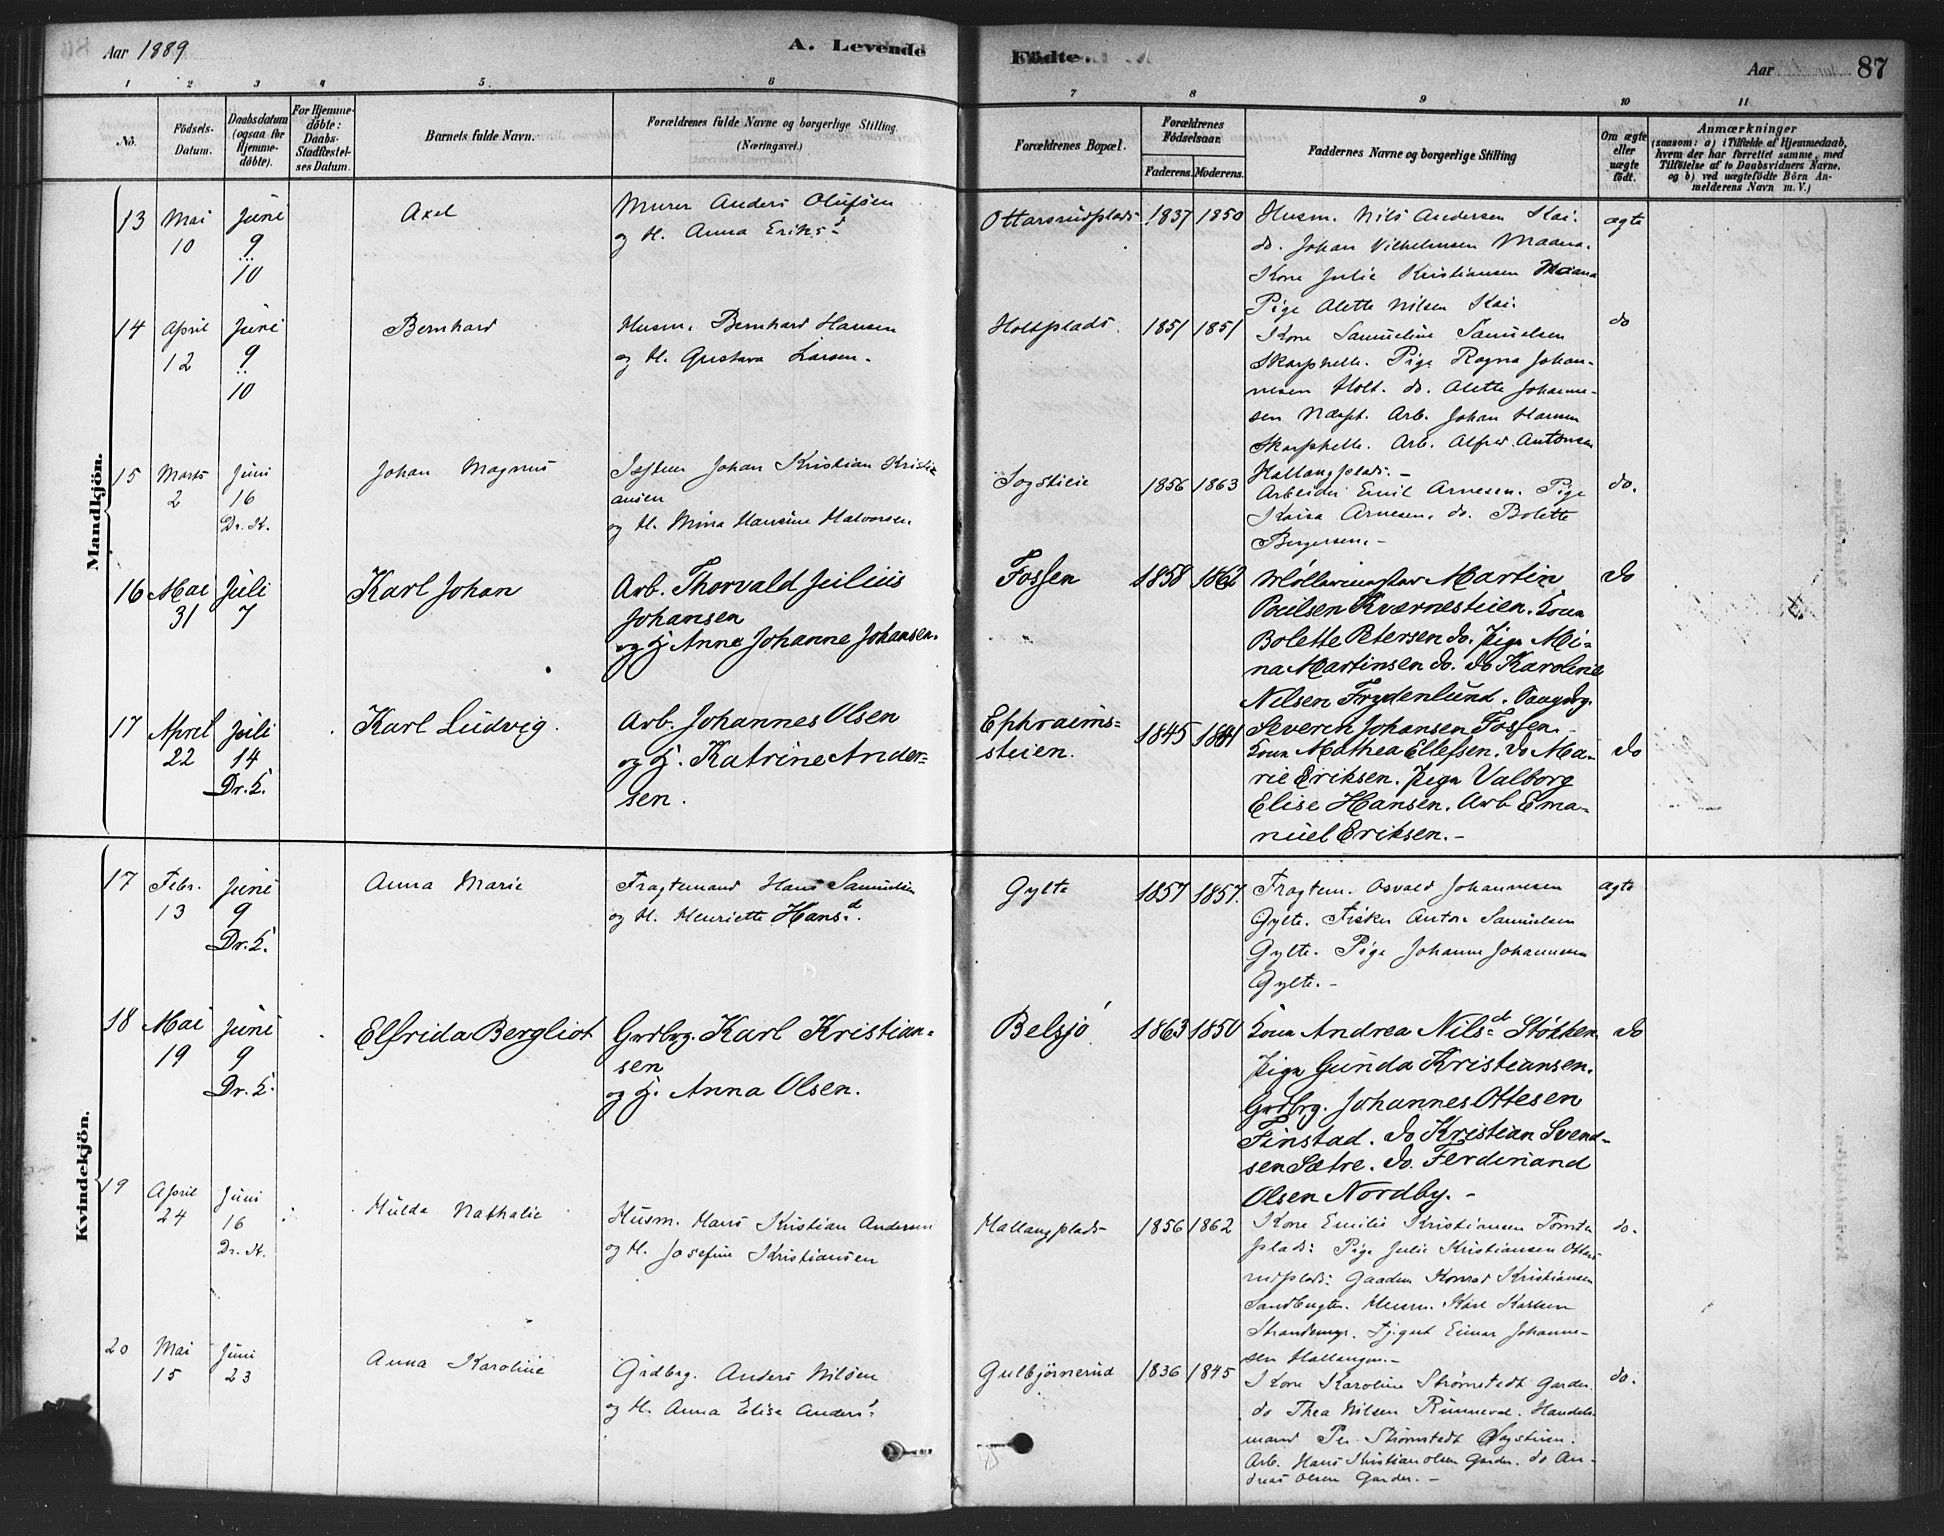 Aar 1889
A. Levende
Födte.
Aar
87
1 2 3 4 5 6 7 8 9 10 11
No.
Födsels-
Datum.
Daabsdatum
(ogsaa for
Hjemme-
döbte).
For Hjemme-
döbte:
Daabs-
Stadfæstel-
ses Datum.
Barnets fulde Navn.
Forældrenes fulde Navne og borgerlige Stilling.
(Næringsvei.)
Forældrenes Bopæl.
Forældrenes
Födselsaar.
Faderens. Moderens.
Faddernes Navne og borgerlige Stilling
Om ægte
eller
uægte
födt.
Anmærkninger
(saasom: a) i Tilfælde af Hjemmedaab,
hvem der har forrettet samme, med
Tilföielse af to Daabsvidners Navne.
og b) ved uægtefödte Börn An-
melderens Navn m. V.)
Mandkjön.
13
Mai
10
Juni
9
10
Axel
Murer Anders Olufsen
og H. Anna Eriks d
Ottarsrudplads
1837 1850
Husm. Nils Andersen Kai.
do. Johan Vilhelmsen Maana.
Kone Julie Kristiansen Maana
Pige Alette Nilsen Kai.
ægte
14
April
12
Juni
9
10
Bernhard
Husm. Bernhard Hansen
og H. Gustava Larsen.
Holtplads.
1851 1851
Kone Samueline Samuelsen
Skarphelle. Pige Ragna Johan-
nesen Holt. do. Alette Johanne-
sen Næspt. Arb. Johan Hansen
Skarphelle. Arb. Alfred Antonsen
Hallangplads.-
do
15
Marts
2
Juni
16
Dr. K.
Johan Magnus
Johan Kristian Kristi
ansen
og H. Mina Hansine Halvorsen
Sogstieie
1856 1863
Arbeider Emil Arnesen. Pige
Kaisa Arnesen. do. Bolette
Bergersen.-
do.
16
Mai
31
Juli
7
Karl Johan
Arb. Thorvald Julius
Johansen
og H. Anna Johanne Johansen.
Fossen
1858 1862
Møllermester Martin
Poulsen Kværnestuen. Kone
Bolette Petersen do. Pige Mi-
na Martinsen do. do Karoline
Nilsen Frydenlund.
Severin Johansen Fossen.
do
17
April
22
Juli
14
Dr. K.
Karl Ludvig.
Arb. Johannes Olsen
og H. Katrine Ander-
sen.
Ephraims-
steien.
1845 1841
Kone Mathea Ellefsen. do Ma-
rie Eriksen. Pige Valborg
Elise Hansen. Arb Ema-
nuel Eriksen.-
do
Kvindekjön.
17
Febr.
13
Juni
9
Dr. K.
Anna Marie
Fragtemand Hans Samuelsen
og H. Henriette Hans d.
Gylte
1857 1857.
Fragtem. Osvald Johannesen
Gylte. Fisker Anton Samuelsen
Gylte. Pige Johanne Johannesen
Gylte.-
ægte
18
Mai
19
Juni
9
Dr. K.
Elfrida Bergliot
Grdbrg. Karl Kristian-
sen
og H. Anna Olsen.
Belsjø
1863 1850
Kone Andrea Nils d Støkken
Pige Gunda Kristiansen.
Grdbrg. Johannes Ottesen
Finstad. do Kristian Svend-
sen Sætre. do. Ferdinand
Olsen Nordby.-
do
19
April
24
Juni
16
Dr. K.
Hulda Nathalie
Husm. Hans Kristian Andersen
og H. Josefine Kristiansen
Hallangplads
1856 1862
Kone Emilie Kristiansen Tomte
plads: Pige Julie Kristiansen Ottars-
rudplads: Gaardm Konrad Kristiansen
Sandbugten. Husm. Karl Karlsen
Strandemyr. Einar Johanne-
sen Hallangen.-
do.
20
Mai
15
Juni
23
Anna Karoline
Grdbrg. Anders Nilsen
og H. Anna Elise Anders d.
Gulbjørnerud
1836 1845
Kone Karoline Strømstedt Garder.
do Thea Nilsen Runneval. Handels-
mand Per Strømstedt Sogstieien.
Arb. Hans Kristian Olsen Garder. do An-
dreas Olsen Garder.-
do.